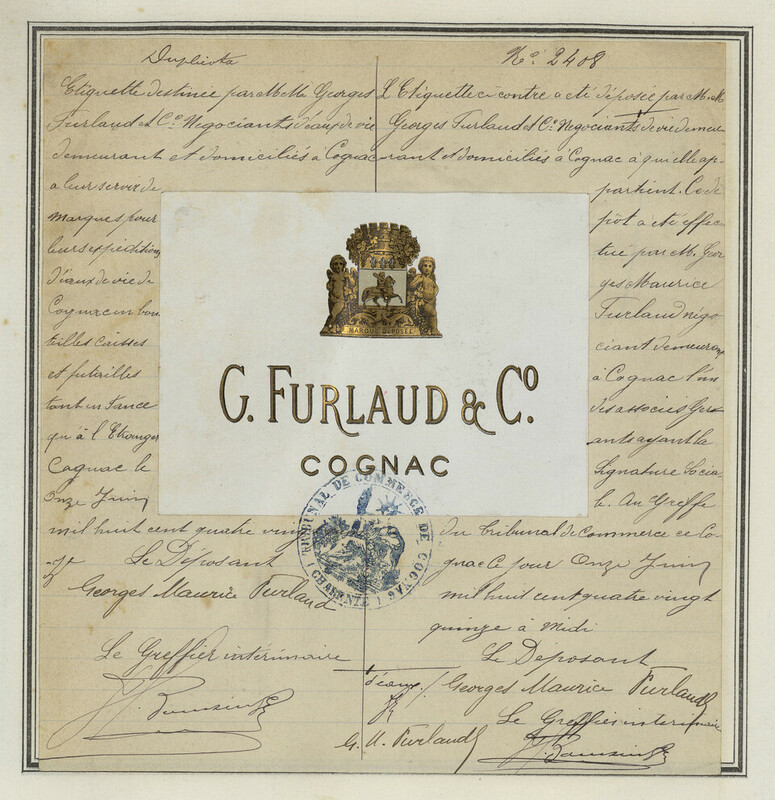 Duplicata
Etiquette destinée par M.M. Georges
Furlaud et Cº Negociants d'eaux de vie
demeurant et domiciliés à Cognac
a leur servir de
marques pour
leurs expéditions
d'eaux de vie de
Cognac en bou
teilles caisses
et futailles
tant en France
qu'à l'Etranger
Cognac le
Onze Juin
mil huit cent quatre ving
Le Déposant
Georges Maurice Furlaud
Le Greffier intérimaire
Nº 2408
L'Etiquette ci contre a été déposée par M.M
Georges Furlaud et Cº Negociants de vie demeu
rant et domiciliés à Cognac à qui elle ap-
partient. Ce dé
pôt a été effec
tué par M. Geor
ges Maurice
Furlaud négo
ciant demeurant
à Cognac l'un
des associés Gér
ants ayant la
Signature Socia
le. Au Greffe
du Tribunal de Commerce de Co
gnac ce jour Onze Juin
mil huit cent quatre vingt
quinze à Midi
Le Deposant
Georges Maurice Furlaud
Le Greffier intérimaire
G. M. Furlaud
MARQUE DÉPOSÉE
G. FURLAUD & Cº
COGNAC
TRIBUNAL DE COMMERCE DE COGNAC
(CHARENTE)